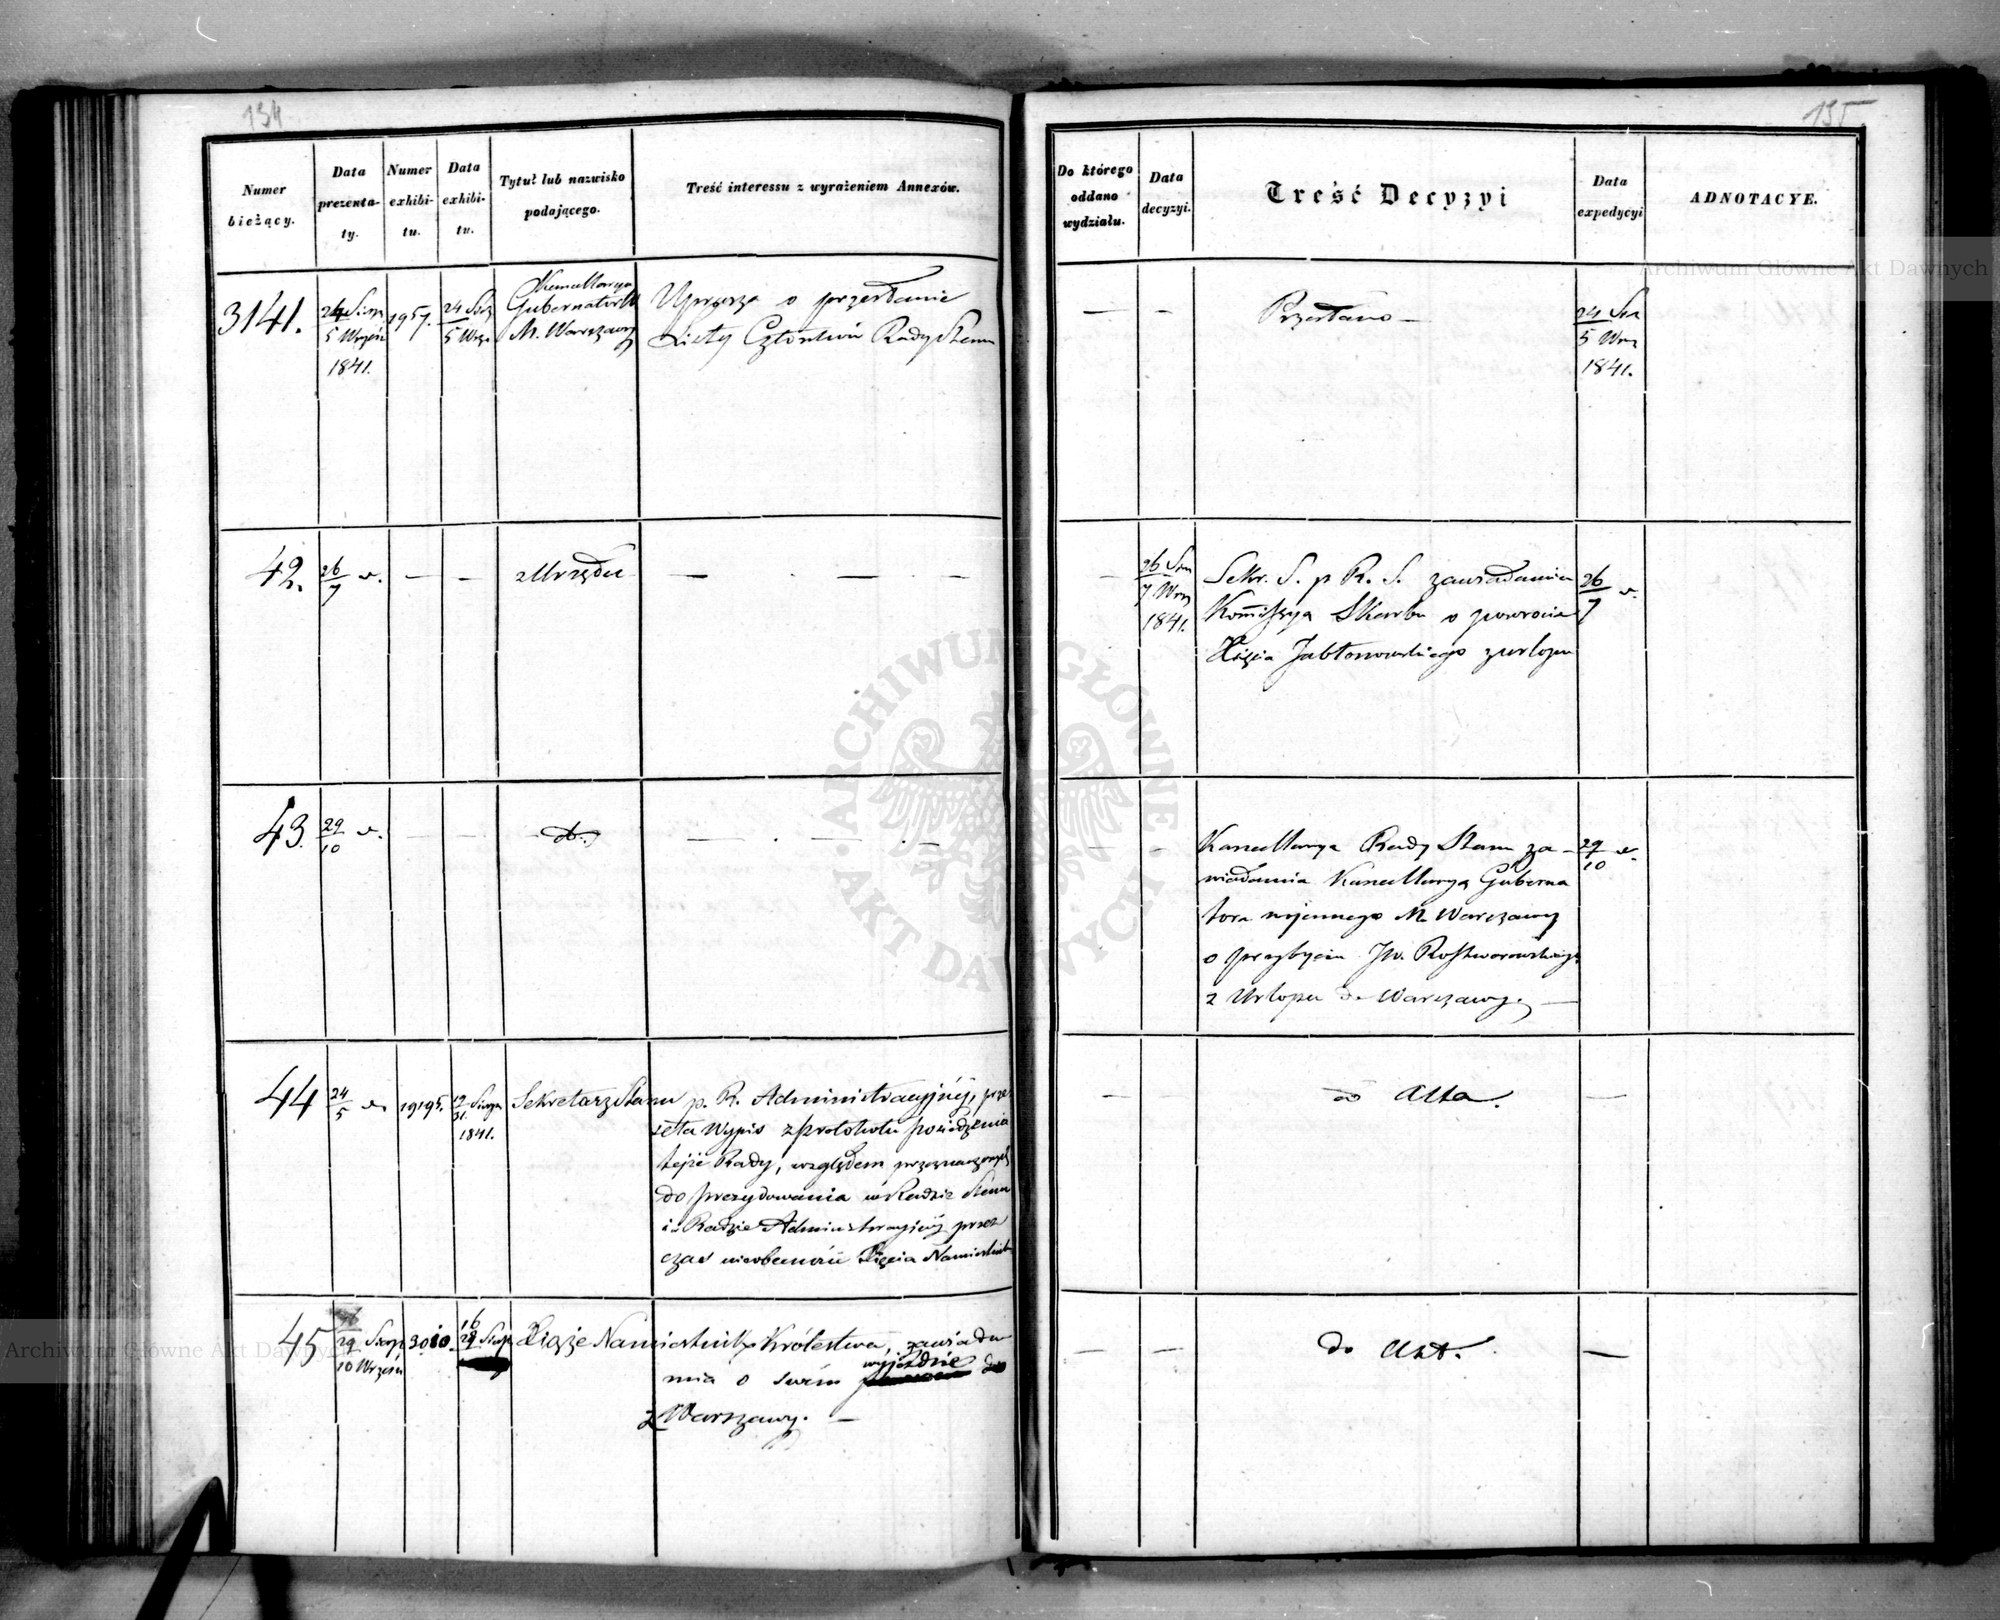 134
Numer bieżący.
Data prezenta- ty.
Numer exhibi- tu.
Data exhibi- tu.
Tytuł lub nazwisko podającego.
Treść interessu z wyrażeniem Annexów.
3141.
24 Sierp
5 Wrześ
1841.
1957.
24 Sier
5 Wrze
Kancellarya
Gubernatora W
M. Warszawy
Uprasza o przesłanie
Listy Członków Rady Stanu
42.
26
7
z Urzędu
43.
29
10
44
24
5
19195.
19 Sierpn
31.
1841.
Sekretarz Stanu p. R. Administracyjnéj, prze-
seła Wypis z protokołu posiedzenia
tejże Rady, względem przeznaczonych
do prezydowania w Radzie Stanu
i w Radzie Administracyjnéj przez
czas nieobecności Księcia Namiestnika
45
29 Sierp
10 Wrześn
16
28 Sierp
Xiąże Namiestnik Królestwa, zawiada-
mia o swém wyjeździe
z Warszawy.
135
Do którego oddano wydziału.
Data decyzyi.
Treść Decyzyi
Data expedycyi
ADNOTACYE.
Przesłano
24 Sier
5 Wrz
1841.
26 Sier
7 Wrz
1841.
Sekr. S. p R. S. zawiadamia
Kommissya Skarbu o powrocie
Xięcia Jabłonowskiego z urlopu
26
7
Kancellarya Rady Stanu za-
wiadamia Kancellaryą Guberna
tora wojennego M. Warszawy
o przybyciu JW. Rostworowskiego
z Urlopu do Warszawy.
29
10
do Akta.
do Akt.
ARCHIWUM GŁÓWNE AKT DAWNYCH
Archiwum Główne Akt Dawnych
Archiwum Główne Akt Dawnych